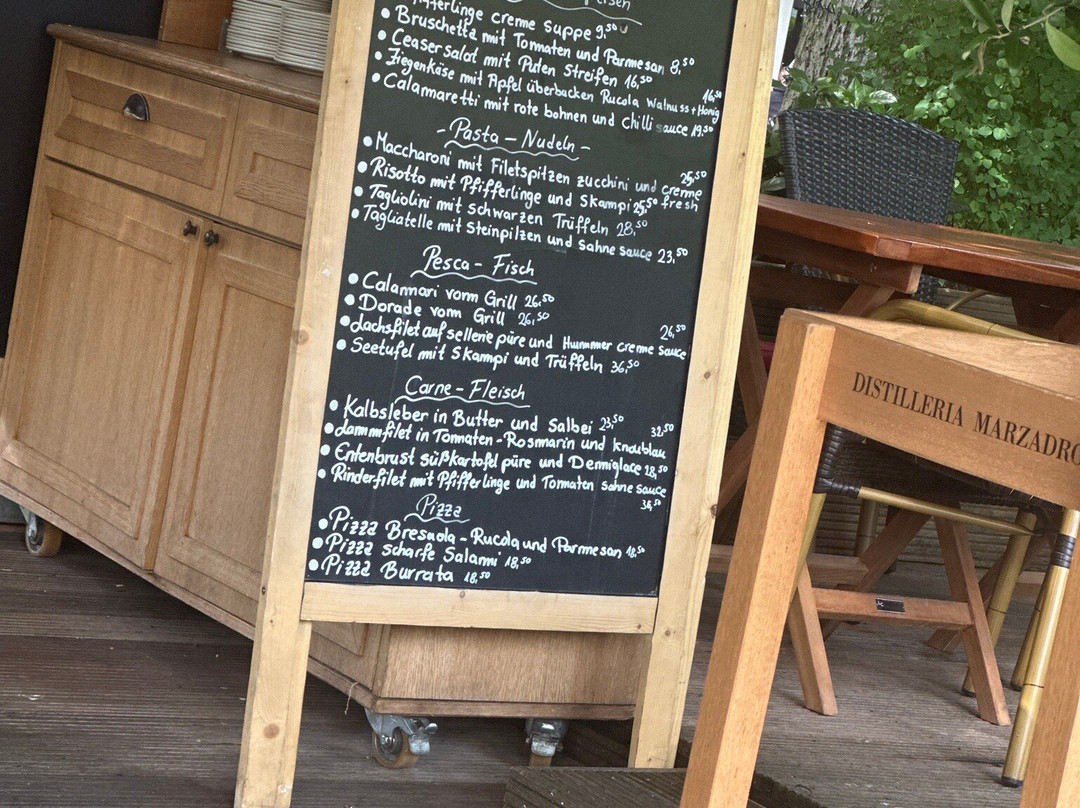 creme suppe 9,50
Bruschetta mit Tomaten und Parmesan 8,50
Ceaser salat mit Puten Streifen 16,50
Ziegenkäse mit Apfel überbacken Rucola Walnuss + Honig 16,50
Calamaretti mit rote bohnen und chilli sauce 19,50
- Pasta - Nudeln -
Maccharoni mit Filetspitzen zucchini und creme fresh 25,50
Risotto mit Pfifferlinge und Skampi 25,50
Tagliolini mit schwarzen Trüffeln 28,50
Tagliatelle mit Steinpilzen und sahne sauce 23,50
Pesca - Fisch
Calamari vorm Grill 26,50
Dorade vorm Grill 26,50
Lachsfilet auf sellerie püre und Hummer creme sauce 26,50
Seetufel mit Skampi und Trüffeln 36,50
Carne - Fleisch
Kalbsleber in Butter und Salbei 23,50
Lammfilet in Tomaten - Rosmarin und knoublau 32,50
Entenbrust süßkartofel püre und Demiglace 28,50
Rinderfilet mit Pfifferlinge und Tomaten sahne sauce 38,50
Pizza
Pizza Bresaola - Rucola und Parmesan 18,50
Pizza scharfe Salami 18,50
Pizza Burrata 18,50
DISTILLERIA MARZADRO